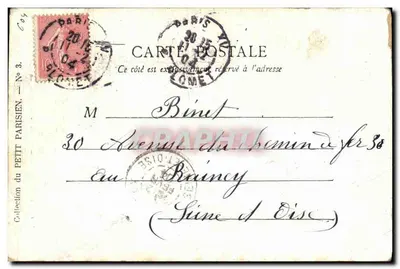 PARIS
PARIS
CARTE POSTALE
Ce côté est exclusivement réservé à l'adresse
M Binet
30 Avenue du chemin de fer 30
au Rainey
Seine et Oise
Collection du PETIT PARISIEN. — N° 3.